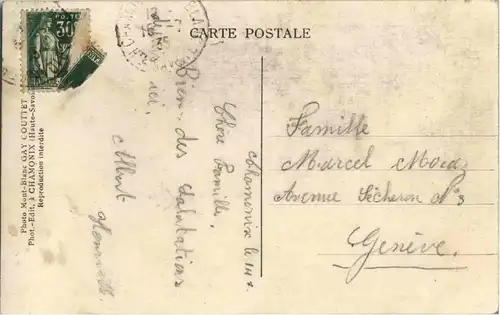 CARTE POSTALE
30
Photo Mont-Blanc GAY COUTTET
Phot.-Edit. à CHAMONIX (Haute-Savoie)
Reproduction interdite
Chamonix le
Chère famille,
Bien des Salutations
ici,
Albert
Famille
Marcel
Avenue Sécheron N° 3
Genève.